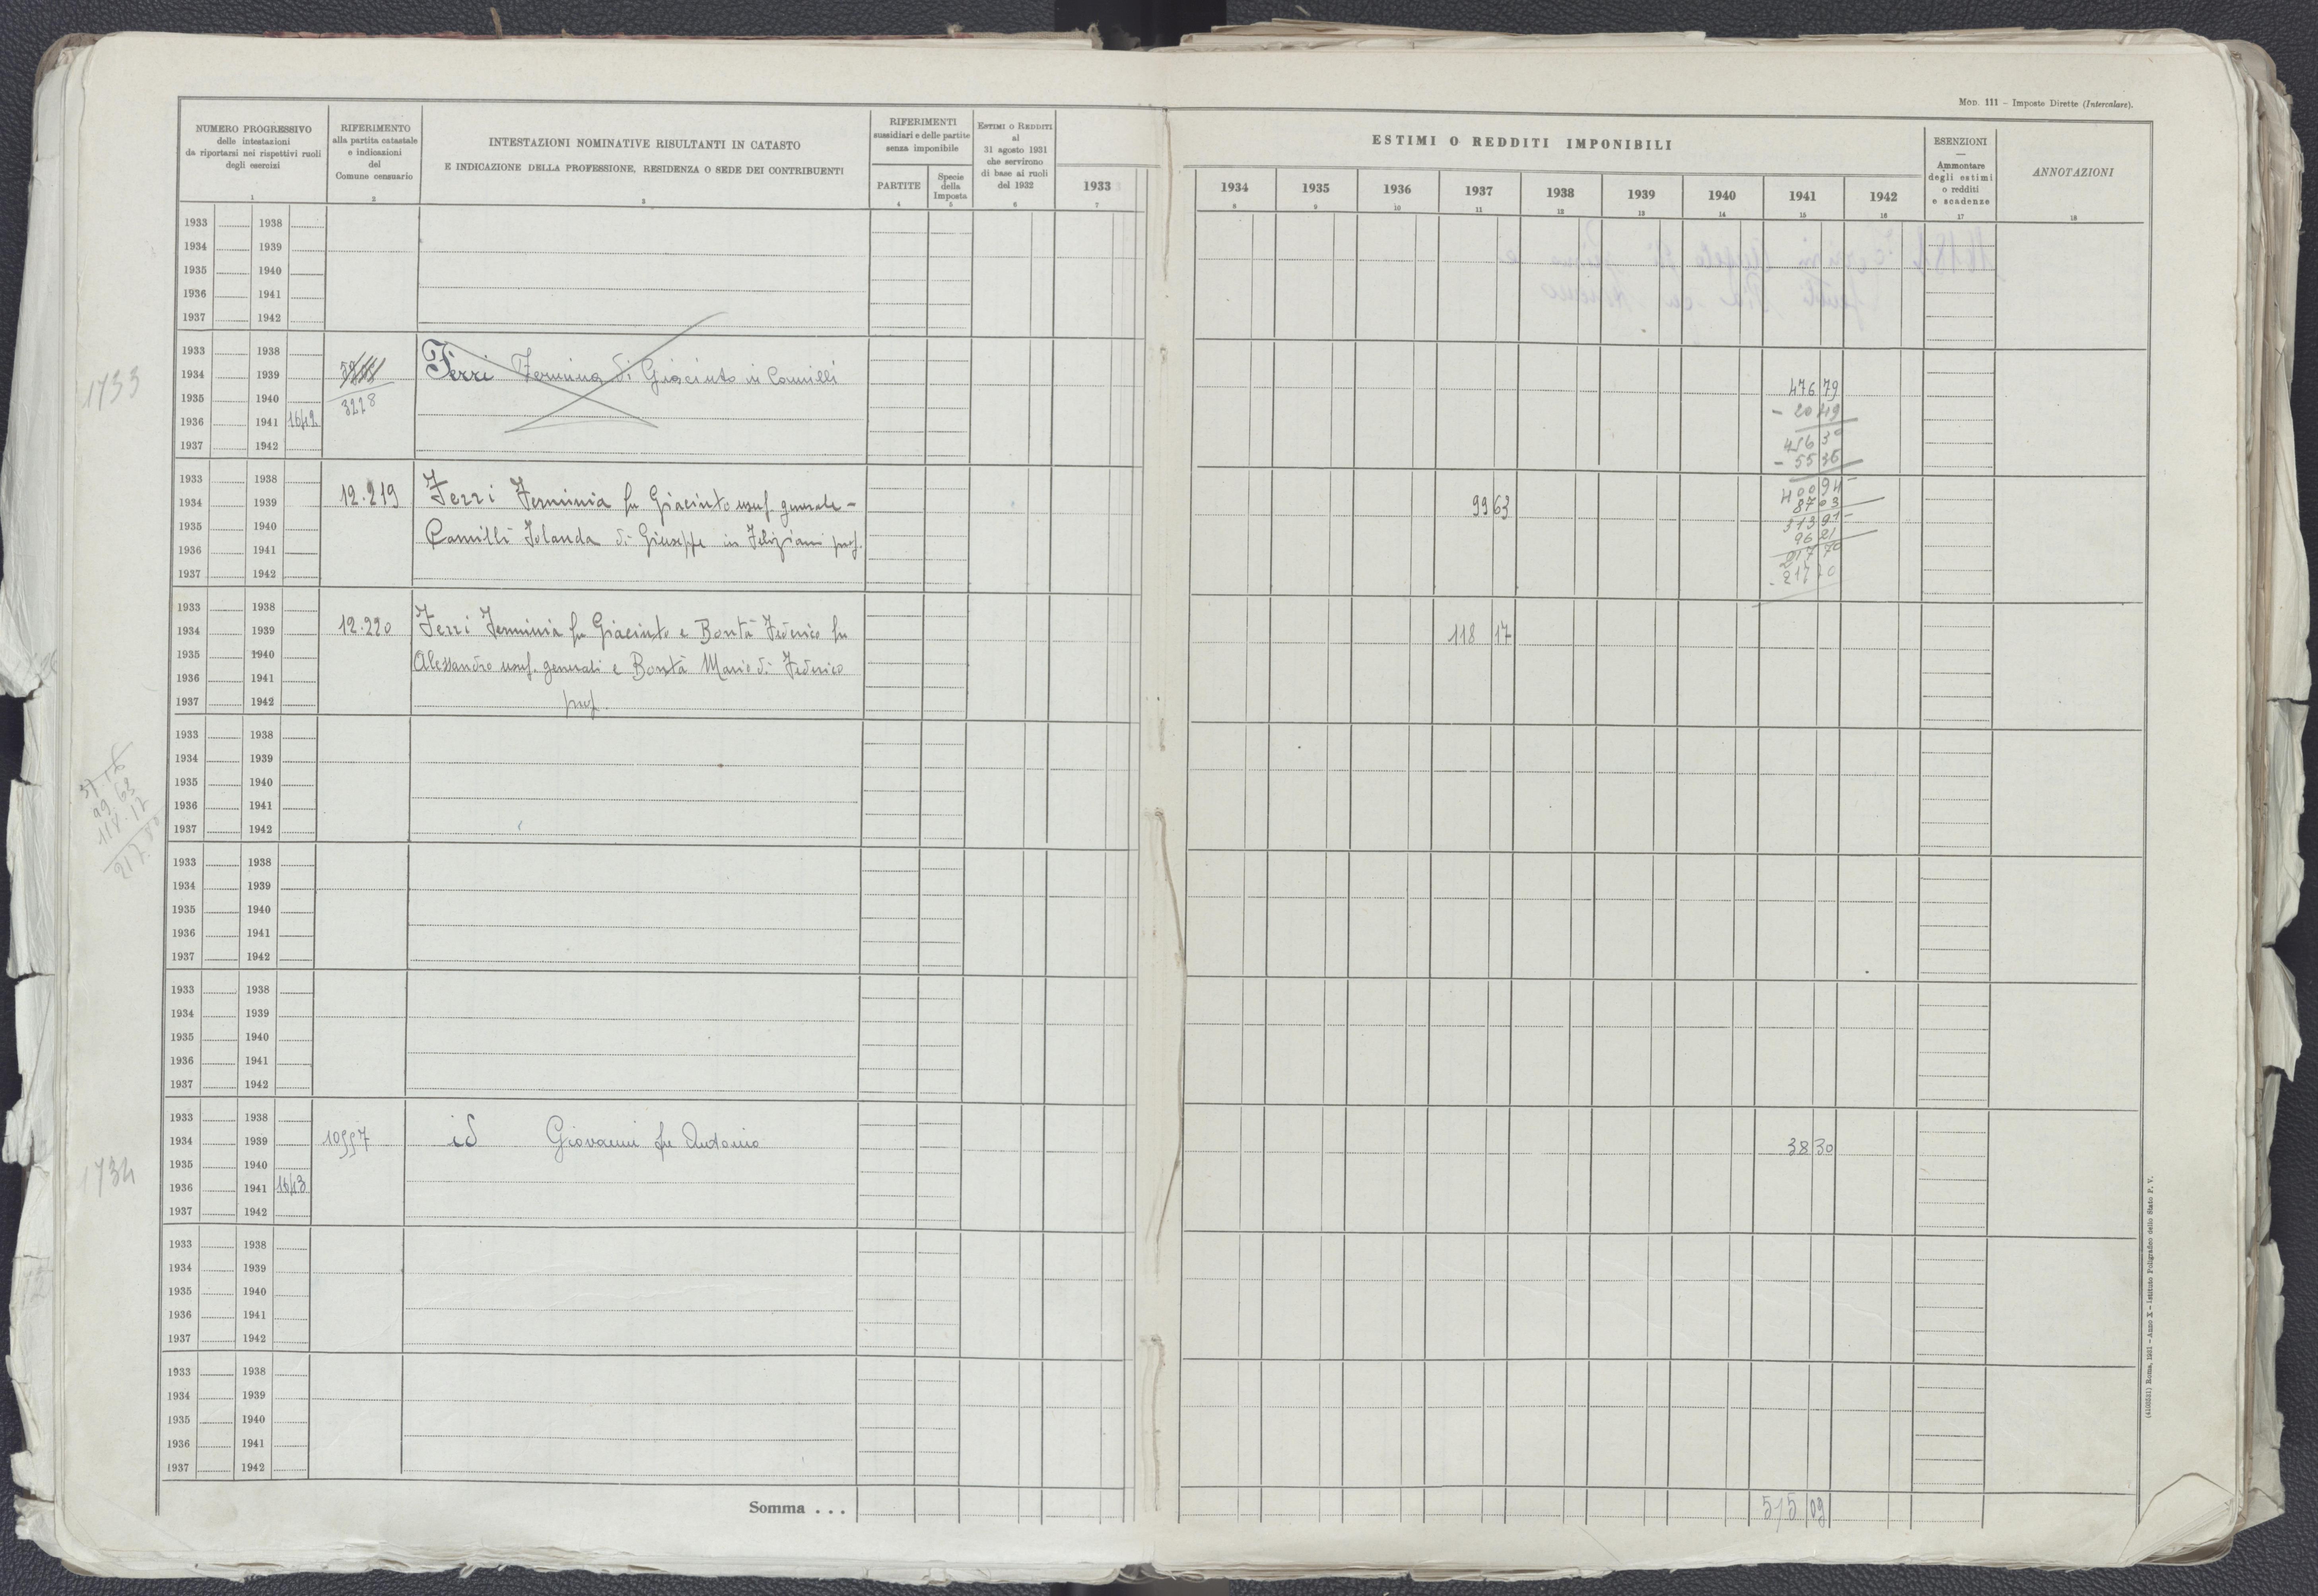 Mod. 111 – Imposte Dirette (Intercalare).
NUMERO PROGRESSIVO
delle intestazioni
da riportarsi nei rispettivi ruoli
degli esercizi
1
RIFERIMENTO
alla partita catastale
e indicazioni
del
Comune censuario
2
INTESTAZIONI NOMINATIVE RISULTANTI IN CATASTO
E INDICAZIONE DELLA PROFESSIONE, RESIDENZA O SEDE DEI CONTRIBUENTI
3
RIFERIMENTI
sussidiari e delle partite
senza imponibile
PARTITE
4
Specie
della
Imposta
5
Estimi o Redditi
al
31 agosto 1931
che servirono
di base ai ruoli
del 1932
6
1933
7
ESTIMI O REDDITI IMPONIBILI
1934 1935 1936 1937 1938 1939 1940 1941 1942
8 9 10 11 12 13 14 15 16
ESENZIONI
—
Ammontare
degli estimi
o redditi
e scadenze
17
ANNOTAZIONI
18
1933 1938
1934 1939
1935 1940
1936 1941
1937 1942
1733
1933 1938
1934 1939 Ferri Fermina di Giacinto in Camilli 476 79
1935 1940 3228 - 20 49
1936 1941 1642 456 30
1937 1942 - 55 36
1933 1938 400 94
1934 1939 12.219 Ferri Ferminia fu Giacinto usuf. generale - 99 63 87 03
1935 1940 Camilli Iolanda di Giuseppe in Feliziani prop. 313 91
1936 1941 96 21
1937 1942 217 70
217 70
1933 1938
1934 1939 12.220 Ferri Ferminia fu Giacinto e Bontà Federico fu 118 17
1935 1940 Alessandro usuf. generali e Bontà Mario di Federico
1936 1941
1937 1942 prop.
1933 1938
1934 1939
1935 1940
1936 1941
1937 1942
99 63
118.17
217.80
1933 1938
1934 1939
1935 1940
1936 1941
1937 1942
1933 1938
1934 1939
1935 1940
1936 1941
1937 1942
1933 1938
1934 1939 10997 id Giovanni fu Antonio 38 30
1935 1940
1734
1936 1941 1643
1937 1942
1933 1938
1934 1939
1935 1940
1936 1941
1937 1942
1933 1938
1934 1939
1935 1940
1936 1941
1937 1942
Somma . . . 515 09
(4100581) Roma, 1931 – Anno X – Istituto Poligrafico dello Stato P. V.